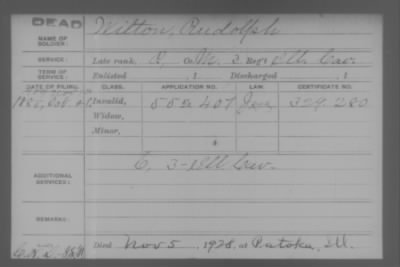 DEAD
NAME OF SOLDIER: Wilton, Rudolph
SERVICE: Late rank, Co. M, 3 Reg't Ill. Cav.
TERM OF SERVICE: Enlisted , 1 Discharged , 1
DATE OF FILING. CLASS. APPLICATION NO. LAW. CERTIFICATE NO.
Invalid, 552 407 329.280
Widow,
Minor,
ADDITIONAL SERVICES: C. 3 - Ill Cav.
REMARKS:
Died Nov 5, 1928, at Patoka, Ill.